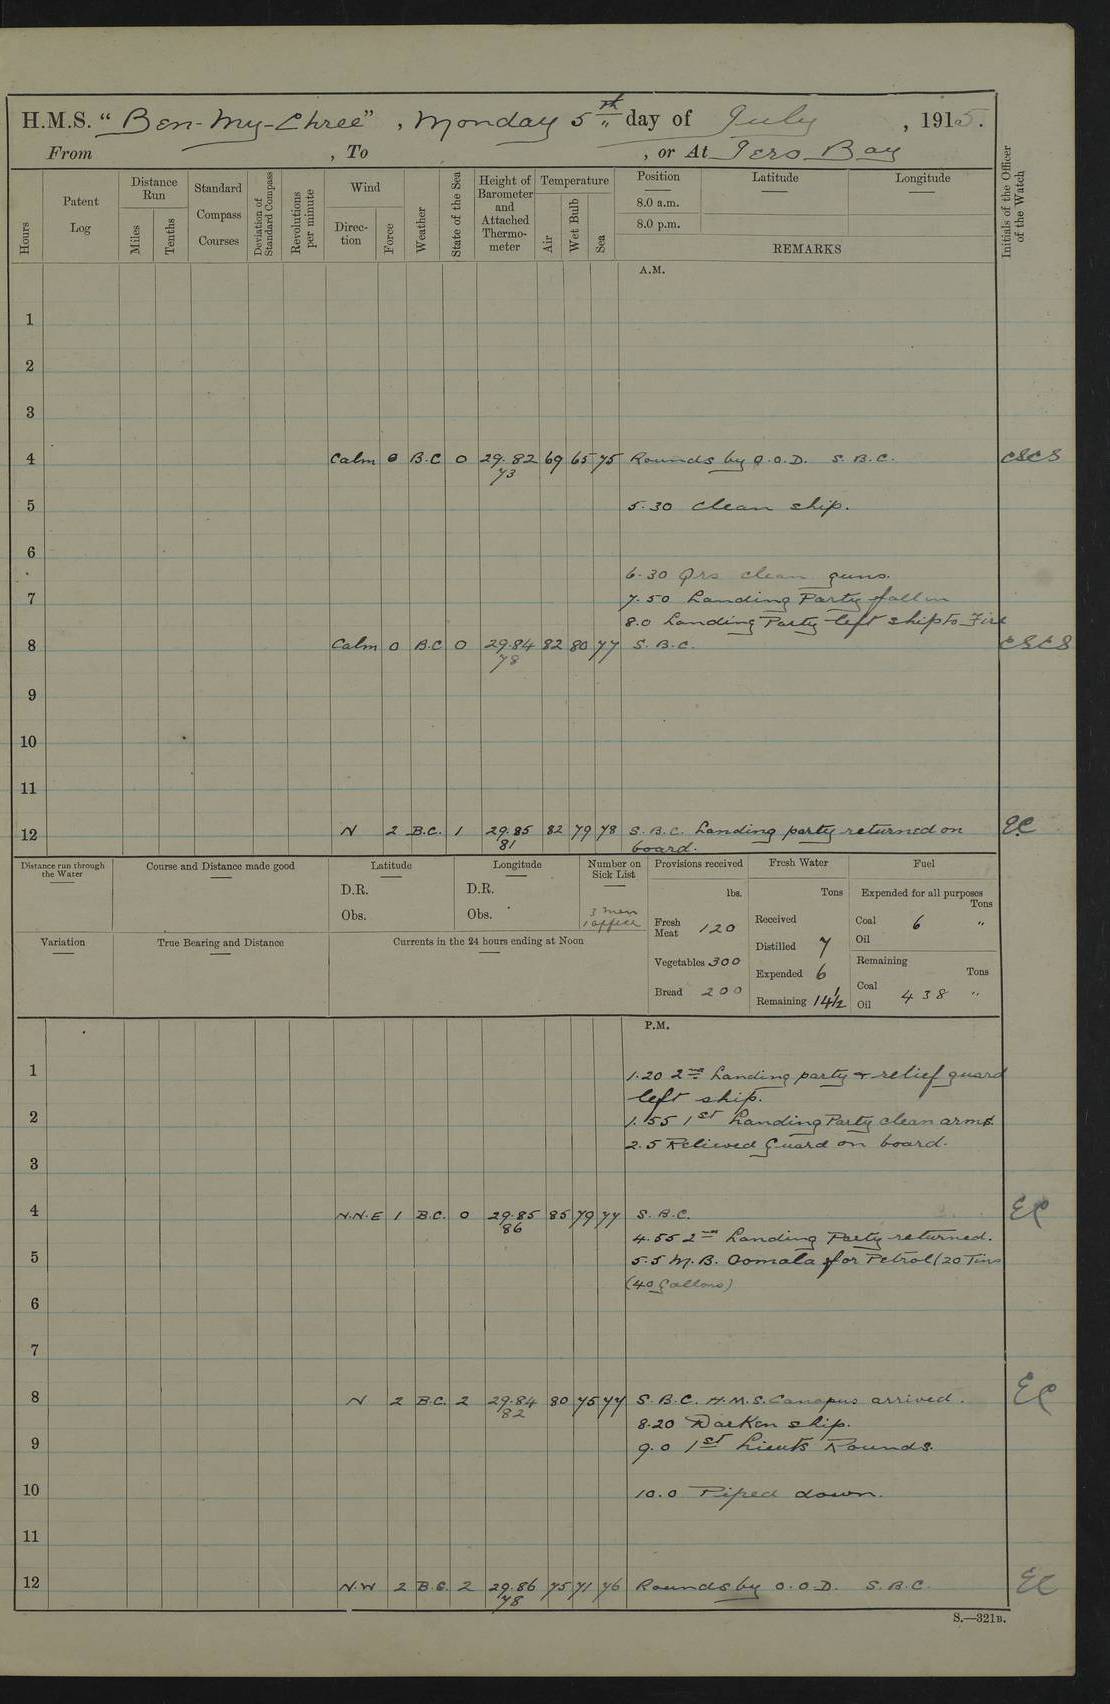 H.M.S. “Ben-My-Chree”, Monday 5th day of July, 1915.
From , To , or At Iero Bay
Hours
Patent Log
Distance Run
Miles
Tenths
Standard Compass Courses
Deviation of Standard Compass
Revolutions per minute
Wind
Direction
Force
Weather
State of the Sea
Height of Barometer and Attached Thermometer
Temperature
Air
Wet Bulb
Sea
Position
8.0 a.m.
8.0 p.m.
Latitude
Longitude
REMARKS
Initials of the Officer of the Watch
A.M.
1
2
3
4 Calm 0 B.C 0 29.82 69 65 75 Rounds by O.O.D. S.B.C. CSCS
73
5 5.30 Clean ship.
6
6.30 Qrs clean guns.
7 7.50 Landing Party fall in
8.0 Landing Party left ship to Fire
8 Calm 0 B.C 0 29.84 82 80 77 S.B.C. CSCS
78
9
10
11
12 N 2 B.C. 1 29.85 82 79 78 S.B.C. Landing party returned on EC
81 board.
Distance run through the Water
Course and Distance made good
Latitude
D.R.
Obs.
Longitude
D.R.
Obs.
Number on Sick List
3 men
1 officer
Variation
True Bearing and Distance
Currents in the 24 hours ending at Noon
Provisions received
lbs.
Fresh Meat 120
Vegetables 300
Bread 200
Fresh Water
Tons
Received
Distilled 7
Expended 6
Remaining 14½
Fuel
Expended for all purposes
Tons
Coal 6 "
Oil
Remaining
Tons
Coal 438 "
Oil
P.M.
1 1.20 2nd Landing party & relief guard
left ship.
2 1.55 1st Landing Party clean arms.
2.5 Relieved Guard on board.
3
4 N.N.E 1 B.C. 0 29.85 85 79 77 S.B.C. EC
86
4.55 2nd Landing Party returned.
5 5.5 M.B. Oomala for Petrol (20 Tins
(40 Gallons)
6
7
8 N 2 B.C. 2 29.84 80 75 77 S.B.C. H.M.S. Canopus arrived. EC
82
8.20 Darken ship.
9 9.0 1st Lieuts Rounds.
10 10.0 Piped down.
11
12 N.W 2 B.C. 2 29.86 75 71 76 Rounds by O.O.D. S.B.C. EC
78
S.—321B.